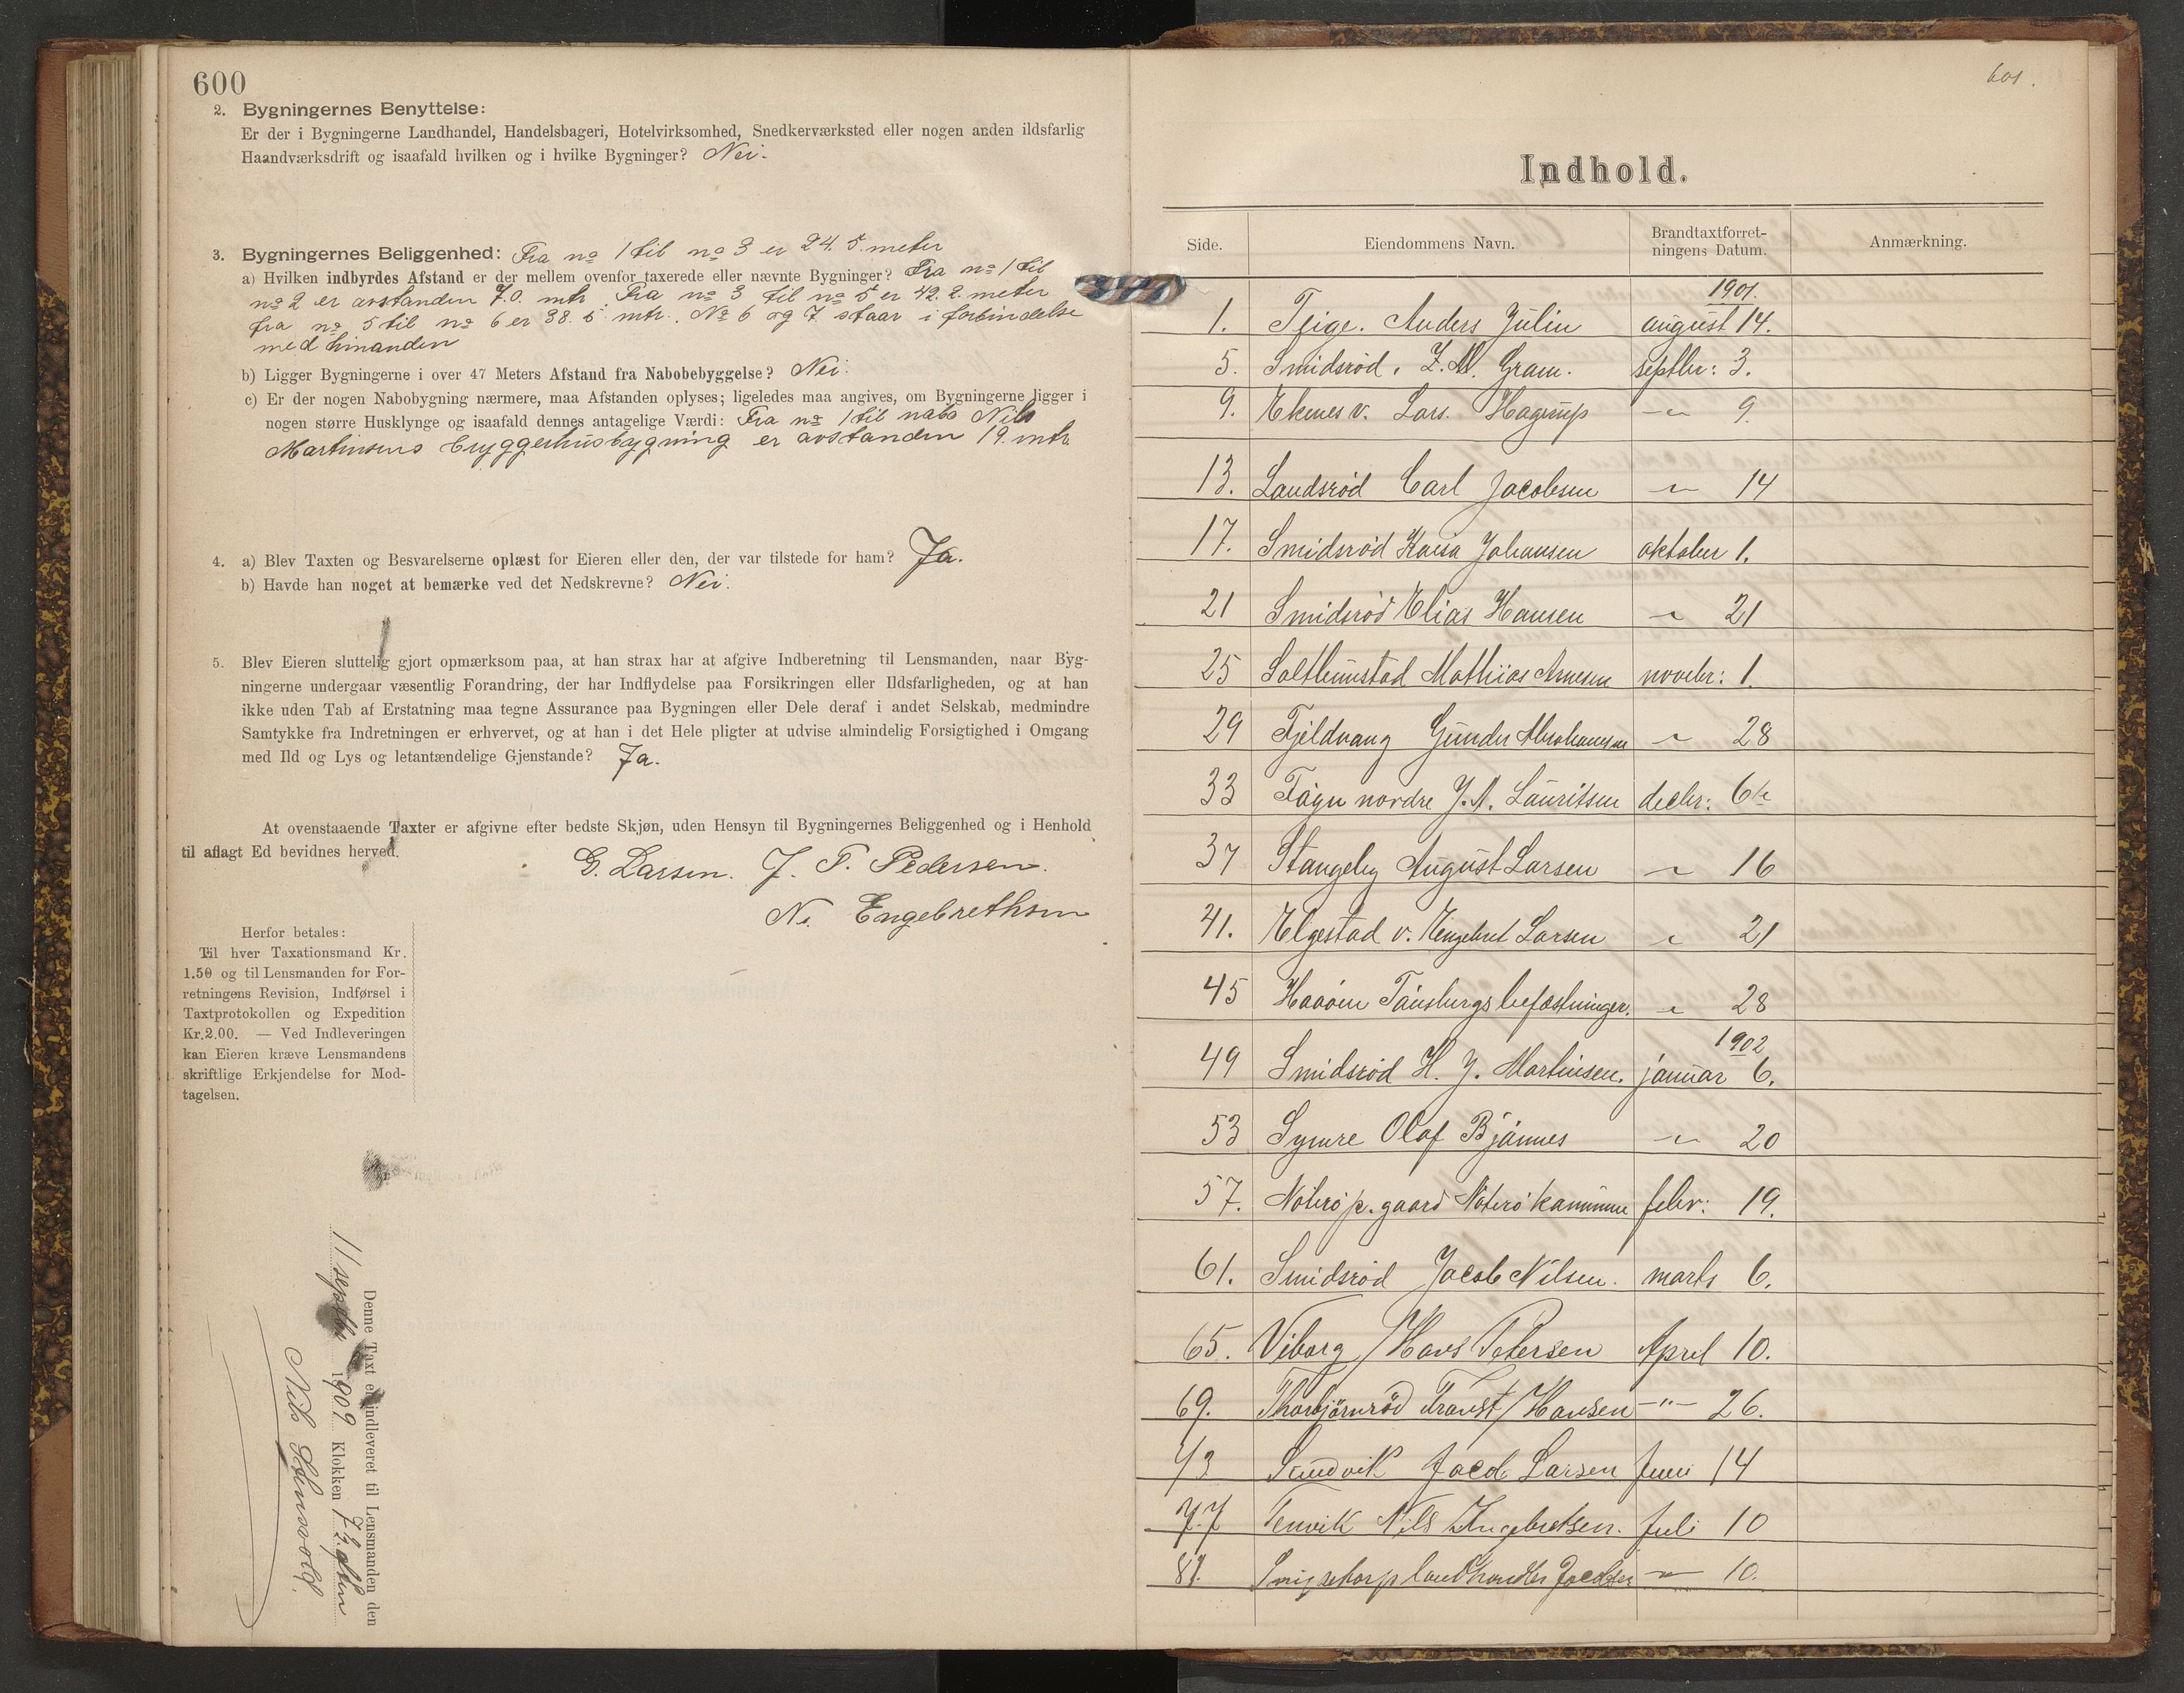 600
2. Bygningernes Benyttelse:
Er der i Bygningerne Landhandel, Handelsbageri, Hotelvirksomhed, Snedkerværksted eller nogen anden ildsfarlig
Haandværksdrift og isaafald hvilken og i hvilke Bygninger? Nei.
3. Bygningernes Beliggenhed: Fra no 1 til no 3 er 24.5 meter
a) Hvilken indbyrdes Afstand er der mellem ovenfor taxerede eller nævnte Bygninger? Fra no 1 til
no 2 er avstanden 7.0. mtr. Fra no 3 til no 5 er 42.2. meter
fra no 5 til no 6 er 38.5 mtr. No 6 og 7 staar i forbindelse
med hinanden
b) Ligger Bygningerne i over 47 Meters Afstand fra Nabobebyggelse? Nei.
c) Er der nogen Nabobygning nærmere, maa Afstanden oplyses; ligeledes maa angives, om Bygningerne ligger i
nogen større Husklynge og isaafald dennes antagelige Værdi: Fra no 1 til nabo Nils
Martinsens bryggerhusbygning er avstanden 19. mtr.
4. a) Blev Taxten og Besvarelserne oplæst for Eieren eller den, der var tilstede for ham? Ja.
b) Havde han noget at bemærke ved det Nedskrevne? Nei.
5. Blev Eieren sluttelig gjort opmærksom paa, at han strax har at afgive Indberetning til Lensmanden, naar Byg-
ningerne undergaar væsentlig Forandring, der har Indflydelse paa Forsikringen eller Ildsfarligheden, og at han
ikke uden Tab af Erstatning maa tegne Assurance paa Bygningen eller Dele deraf i andet Selskab, medmindre
Samtykke fra Indretningen er erhvervet, og at han i det Hele pligter at udvise almindelig Forsigtighed i Omgang
med Ild og Lys og letantændelige Gjenstande? Ja.
At ovenstaaende Taxter er afgivne efter bedste Skjøn, uden Hensyn til Bygningernes Beliggenhed og i Henhold
til aflagt Ed bevidnes herved.
G. Larsen. J. T. Pedersen.
N. Engebrethsen
Herfor betales:
Til hver Taxationsmand Kr.
1.50 og til Lensmanden for For-
retningens Revision, Indførsel i
Taxtprotokollen og Expedition
Kr. 2.00. — Ved Indleveringen
kan Eieren kræve Lensmandens
skriftlige Erkjendelse for Mod-
tagelsen.
Denne Taxt er indleveret til Lensmanden den
11 septbr 1909 Klokken 7
Nils
601.
Indhold.
Side. Eiendommens Navn. Brandtaxtforret-
ningens Datum. Anmærkning.
1901.
1. Teige. Anders Julin august 14.
5. Smidsrød, Z. M. Gram. septbr: 3.
9. Ekenes v. Lars. Hagerup -"- 9.
13. Landsrød Carl Jacobsen -"- 14
17. Smidsrød Kaisa Johansen oktober 1.
21 Smidsrød Elias Hansen " 21
25 Solthumstad Mathias Arnesen novbr: 1.
29 Fjeldvang Gunder Abrahamsen " 28
33 Fagn nordre J. A. Lauritsen decbr: 6te
37 Stangeby August Larsen " 16
41. Elgestad v. Engebret Larsen " 21
45 Haaøen Tønsbergs befæstninger. " 28
1902
49 Smidsrød H. J. Martinsen. januar 6.
53 Symre Olaf Bjønnes -"- 20
57. Nøterø p.gaard Nøterø kommune febr: 19.
61. Smidsrød Jacob Nilsen. marts 6.
65. Viborg / Hans Petersen April 10.
69. Thorbjørnrød Hansen -"- 26.
73 Sundvik Jacob Larsen Juni 14
77 Tenvik Nils Engebretsen. Juli 10
81. landhandler Jacobsen -"- 10.